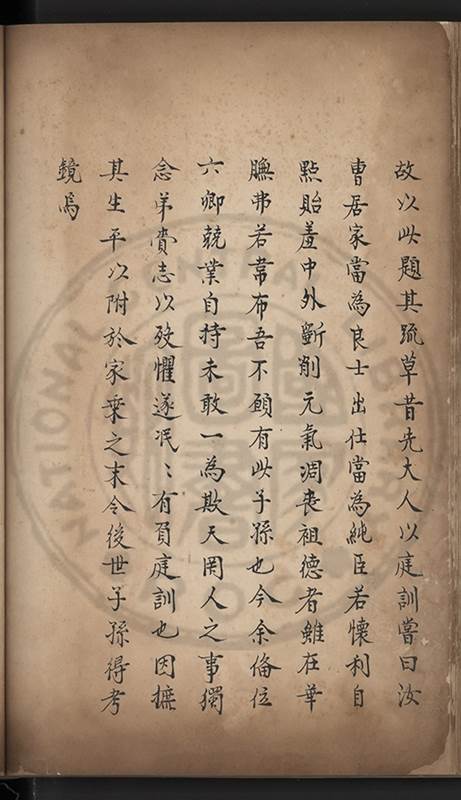 故以此題其疏草昔先大人以庭訓嘗曰汝
曹居家當為良士出仕當為純臣若懷利自
點貽羞中外斲削元氣凋喪祖德者雖在華
膴弗若韋布吾不願有此子孫也今余俻位
六卿兢業自持未敢一為欺天罔人之事獨
念弟賫志以歿懼遂泯〻有負庭訓也因摭
其生平以附於家乗之末令後世子孫得考
鏡焉